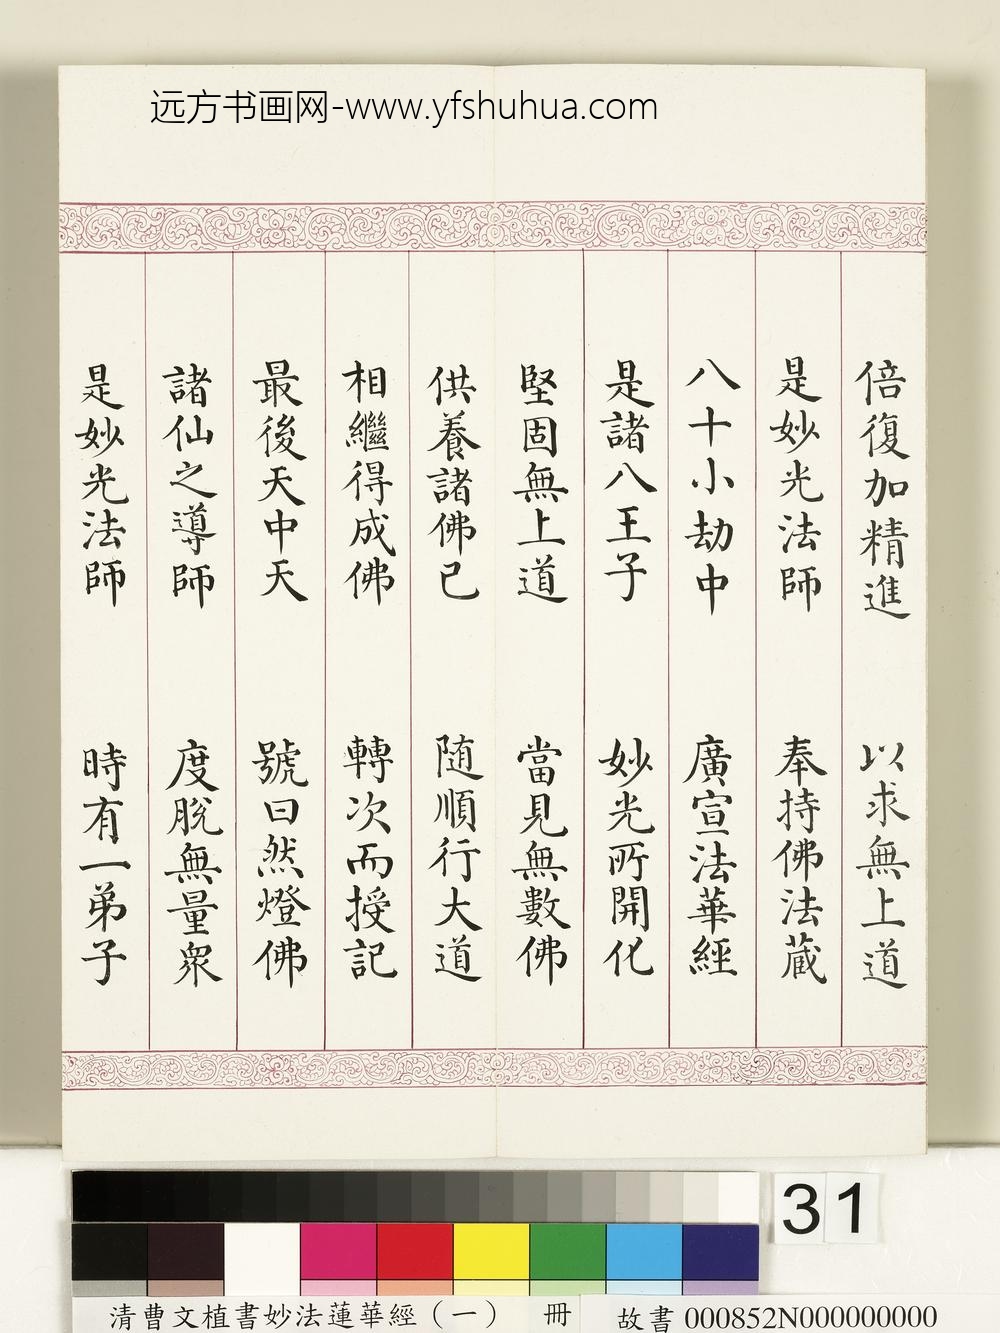 远方书画网-www.yfshuhua.com
倍復加精進 以求無上道
是妙光法師 奉持佛法藏
八十小劫中 廣宣法華經
是諸八王子 妙光所開化
堅固無上道 當見無數佛
供養諸佛已 随順行大道
相繼得成佛 轉次而授記
最後天中天 號曰然燈佛
諸仙之導師 度脫無量眾
是妙光法師 時有一弟子
31
清曹文植書妙法蓮華經（一） 冊 故書000852N000000000